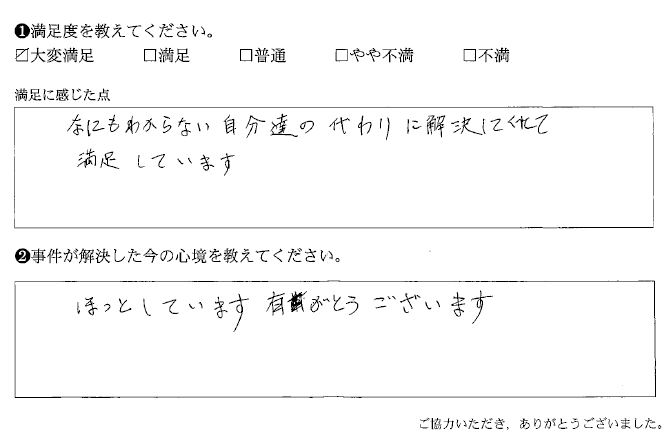 ❶満足度を教えてください。
☑大変満足 □満足 □普通 □やや不満 □不満
満足に感じた点
なにもわからない自分達の代わりに解決してくれて
満足しています
❷事件が解決した今の心境を教えてください。
ほっとしています 有がとうございます
ご協力いただき，ありがとうございました。